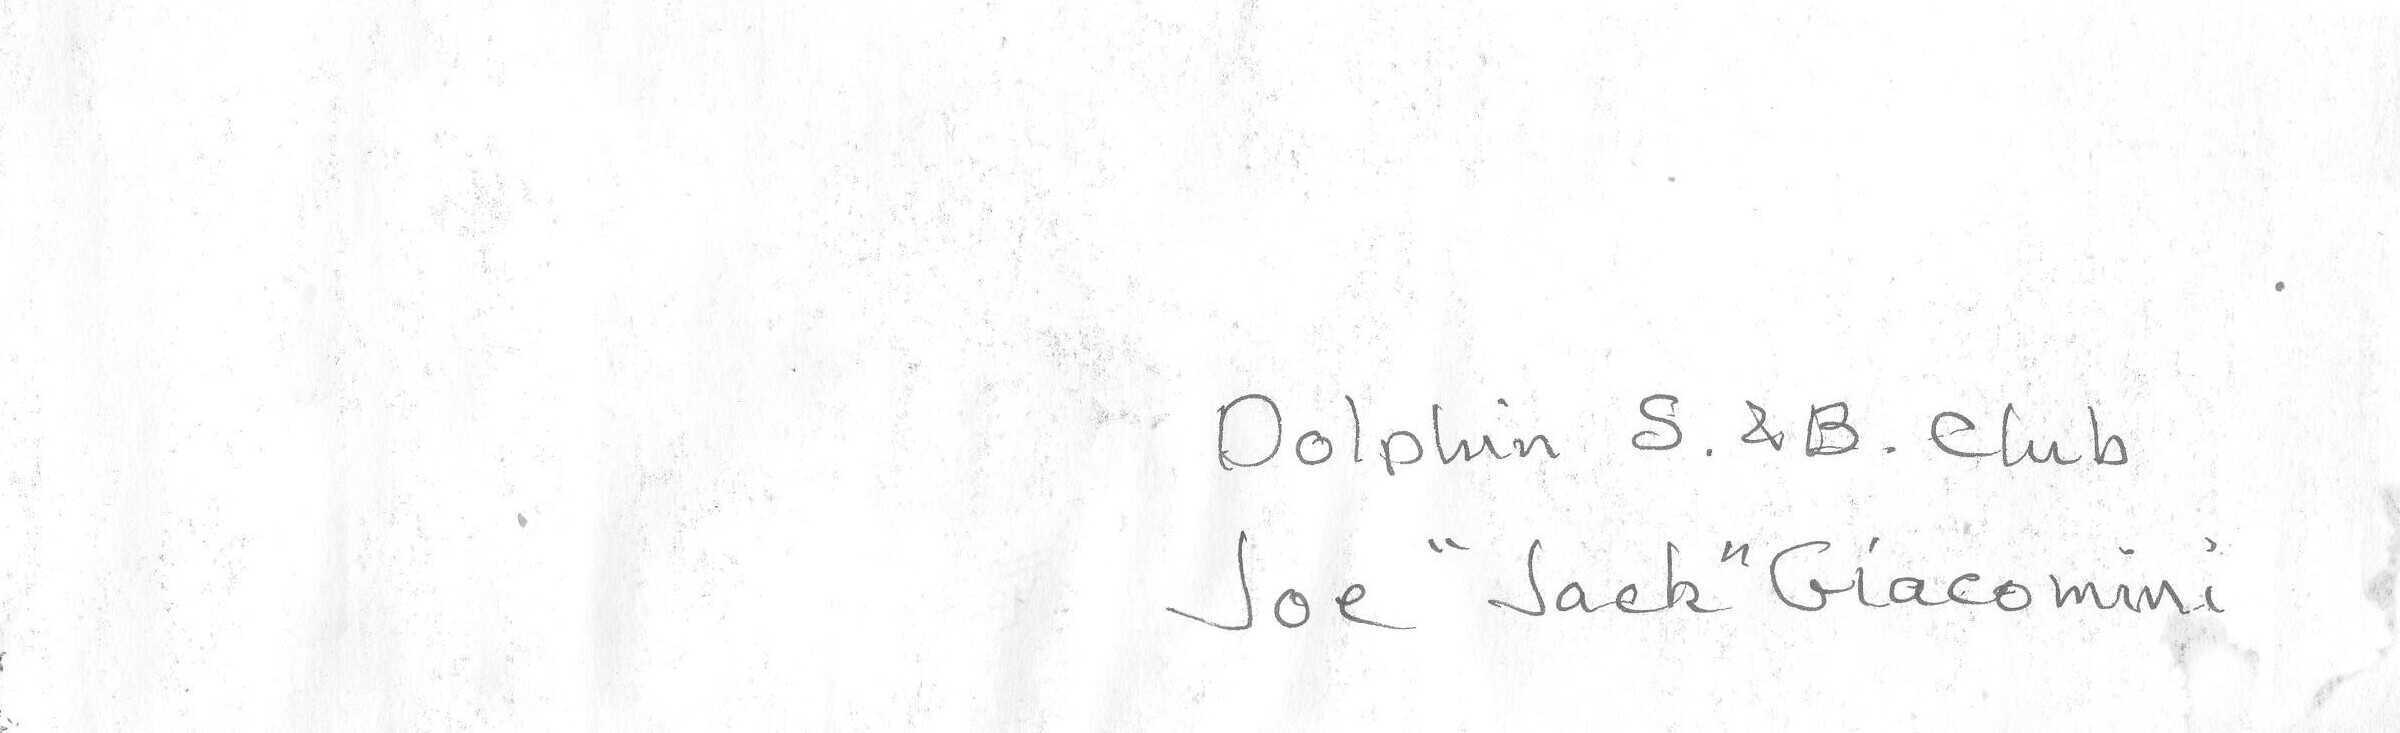 Dolphin S. & B. Club
Joe "Jack" Giacomini